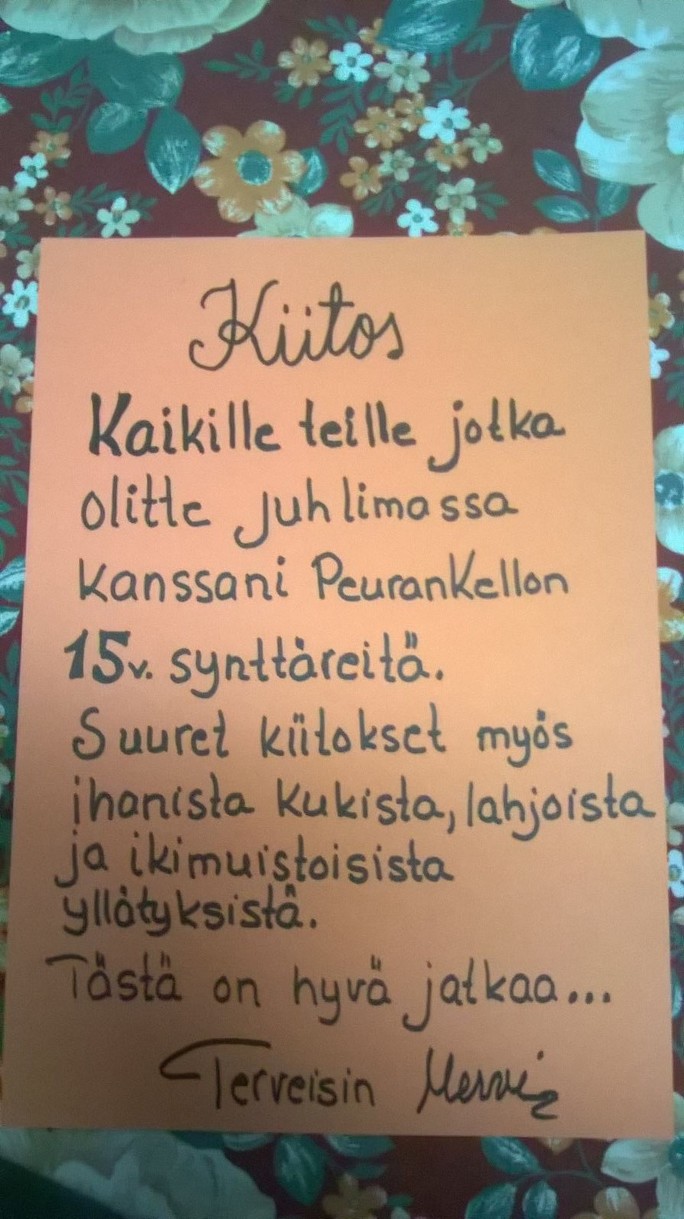 Kiitos
Kaikille teille jotka
olitte juhlimassa
kanssani PeuranKellon
15v. synttäreitä.
Suuret kiitokset myös
ihanista kukista, lahjoista
ja ikimuistoisista
yllätyksistä.
Tästä on hyvä jatkaa...
Terveisin Mervi